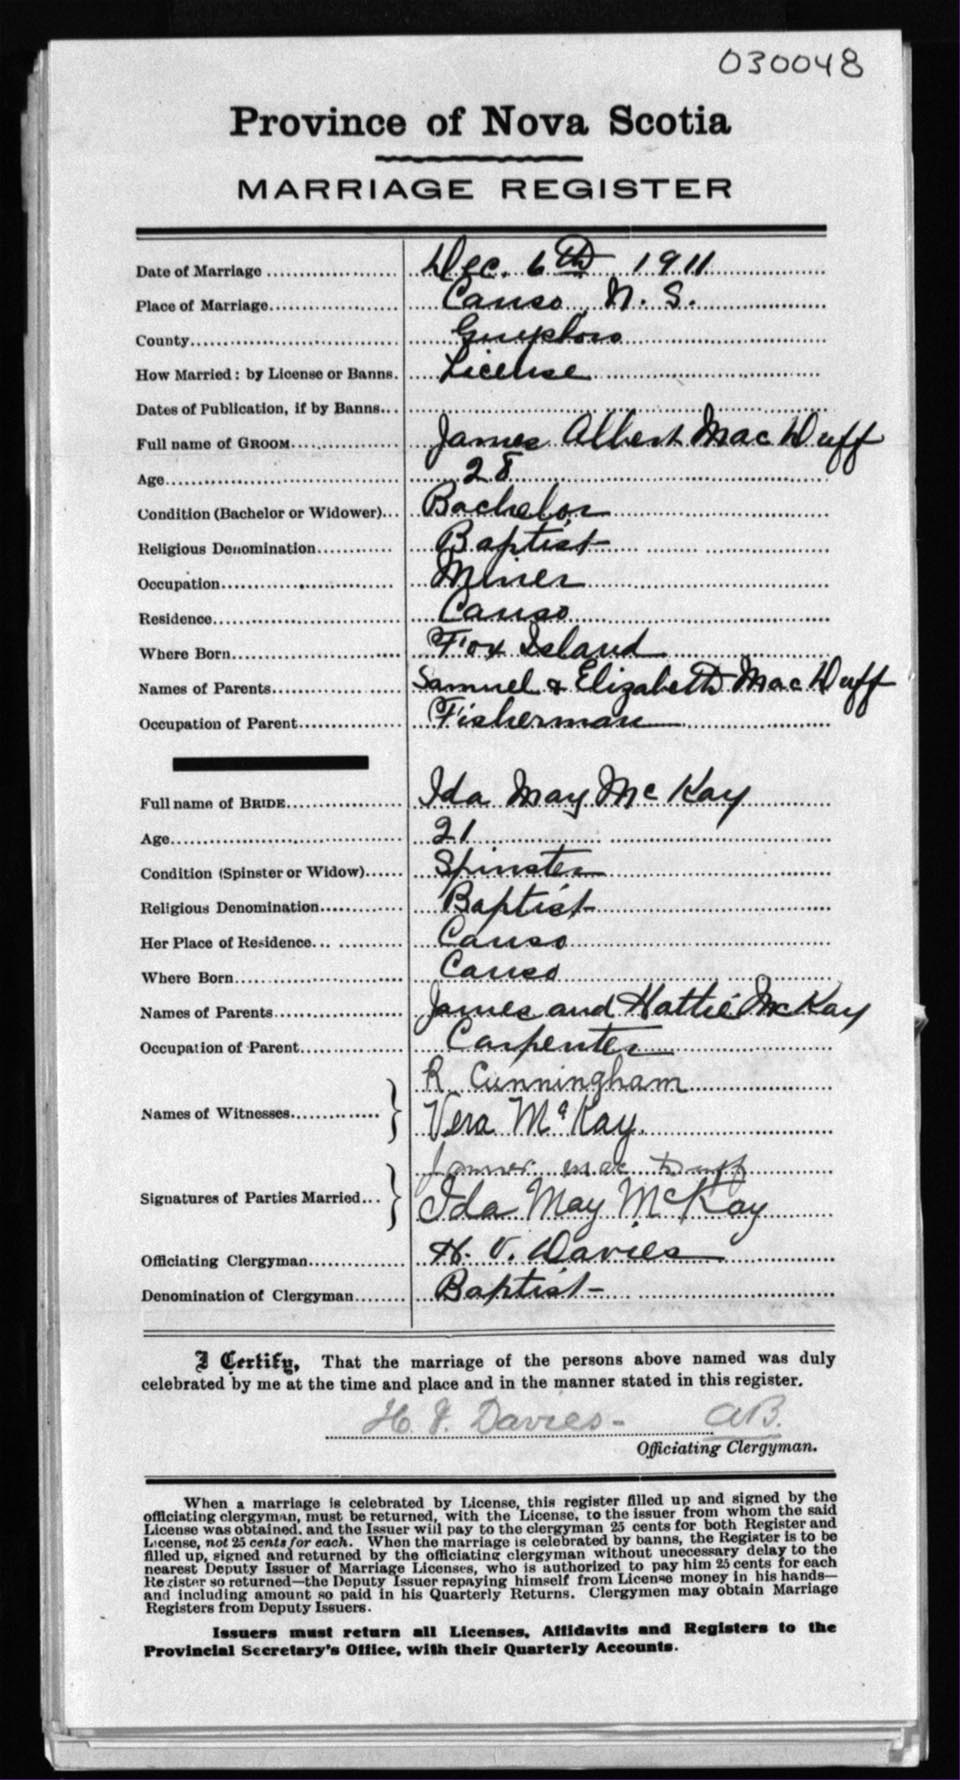 030048
Province of Nova Scotia
MARRIAGE REGISTER
Date of Marriage Dec. 6th 1911
Place of Marriage Canso N. S.
County Guysboro
How Married: by License or Banns. License
Dates of Publication, if by Banns
Full name of GROOM James Albert MacDuff
Age 28
Condition (Bachelor or Widower) Bachelor
Religious Denomination Baptist
Occupation Miner
Residence Canso
Where Born Fox Island
Names of Parents Samuel & Elizabeth MacDuff
Occupation of Parent Fisherman
Full name of BRIDE Ida May McKay
Age 21
Condition (Spinster or Widow) Spinster
Religious Denomination Baptist
Her Place of Residence Canso
Where Born Canso
Names of Parents James and Hattie McKay
Occupation of Parent Carpenter
R Cunningham
Names of Witnesses
Vera McKay.
James Mac Duff
Signatures of Parties Married
Ida May McKay
Officiating Clergyman H. V. Davies
Denomination of Clergyman Baptist
I Certify, That the marriage of the persons above named was duly
celebrated by me at the time and place and in the manner stated in this register.
H. J. Davies - AB.
Officiating Clergyman.
When a marriage is celebrated by License, this register filled up and signed by the
officiating clergyman, must be returned, with the License, to the issuer from whom the said
License was obtained, and the Issuer will pay to the clergyman 25 cents for both Register and
License, not 25 cents for each. When the marriage is celebrated by banns, the Register is to be
filled up, signed and returned by the officiating clergyman without unecessary delay to the
nearest Deputy Issuer of Marriage Licenses, who is authorized to pay him 25 cents for each
Register so returned—the Deputy Issuer repaying himself from License money in his hands—
and including amount so paid in his Quarterly Returns. Clergymen may obtain Marriage
Registers from Deputy Issuers.
Issuers must return all Licenses, Affidavits and Registers to the
Provincial Secretary's Office, with their Quarterly Accounts.